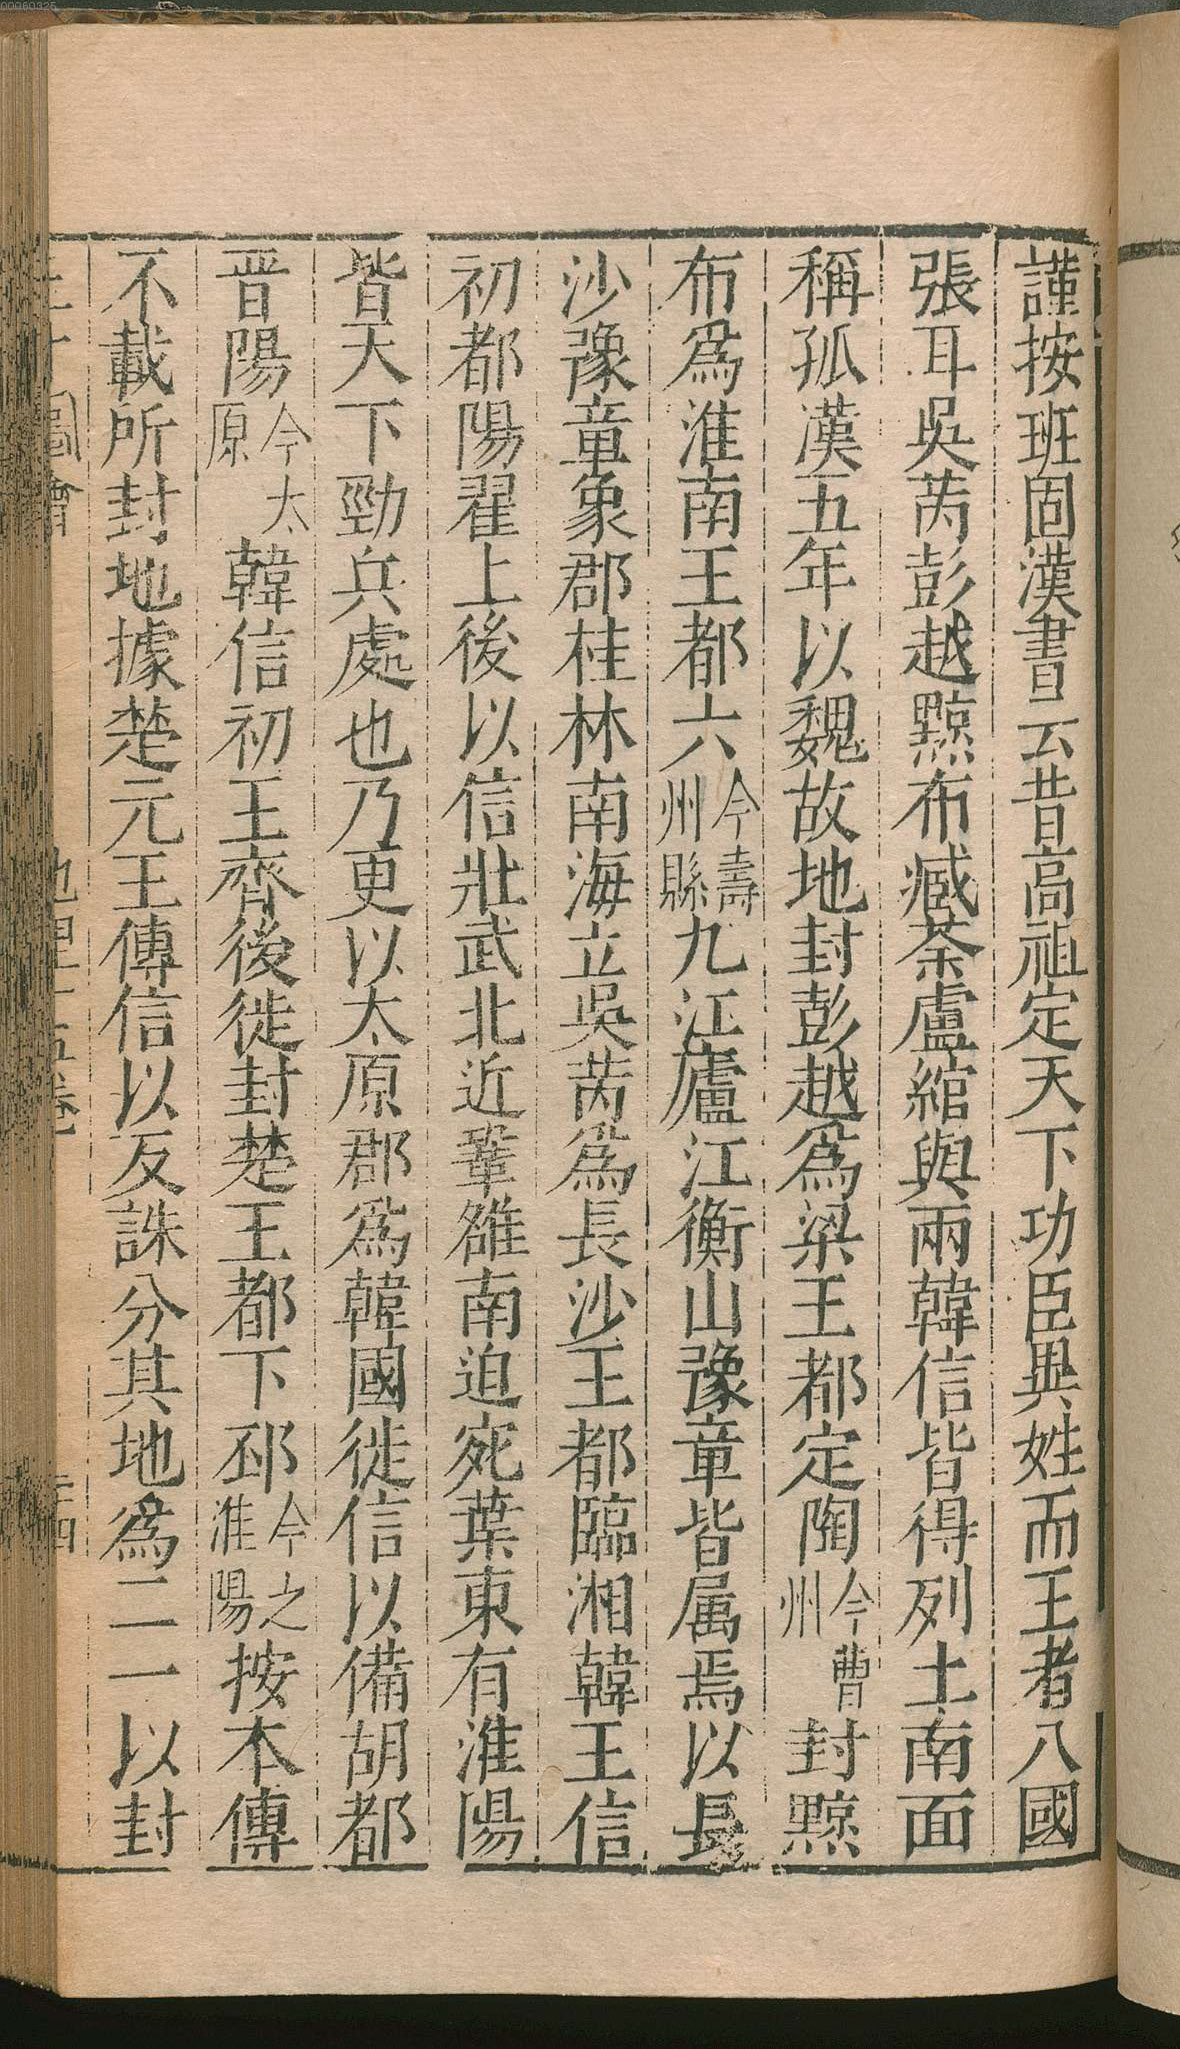 00060325
謹按班固漢書云昔高祖定天下功臣異姓而王者八國
張耳吳芮彭越黥布臧荼盧綰與兩韓信皆得列土南面
稱孤漢五年以魏故地封彭越爲梁王都定陶今曹州封黥
布爲淮南王都六今壽州縣九江廬江衡山豫章皆属焉以長
沙豫章象郡桂林南海立吳芮爲長沙王都臨湘韓王信
初都陽翟上後以信壯武北近鞏雒南迫宛葉東有淮陽
皆天下勁兵處也乃更以太原郡爲韓國徙信以備胡都
晋陽今太原韓信初王齊後徙封楚王都下邳今之淮陽按本傳
不載所封地據楚元王傳信以反誅分其地爲二一以封
圖會 地理十五卷